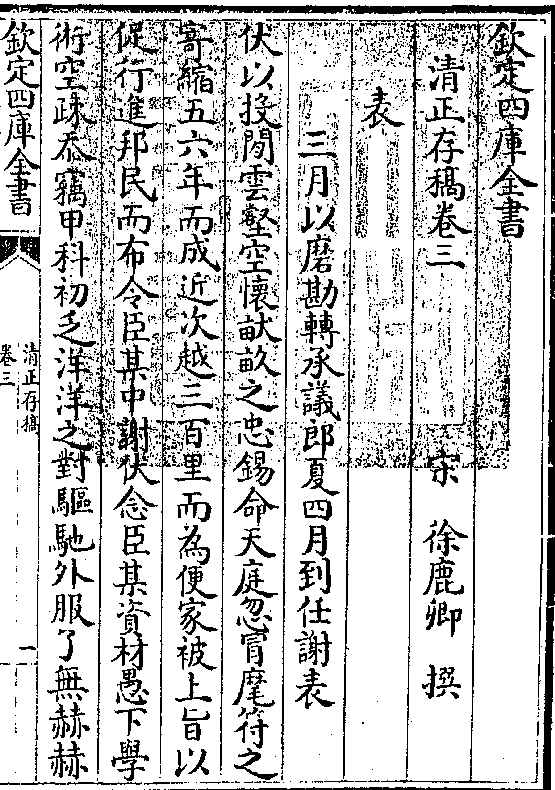 欽定四庫全書
清正存稿卷三
宋 徐鹿卿 撰
表
三月以磨勘轉承議郎夏四月到任謝表
伏以投閒雲壑空懷畎畝之忠錫命天庭忽冐麾符之
寄縮五六年而成近次越三百里而為便家被上旨以
促行進邦民而布令臣某中謝伏念臣某資材愚下學
術空疎忝竊甲科初乏洋洋之對驅馳外服了無赫赫
欽定四庫全書
清正存稿
卷三
一